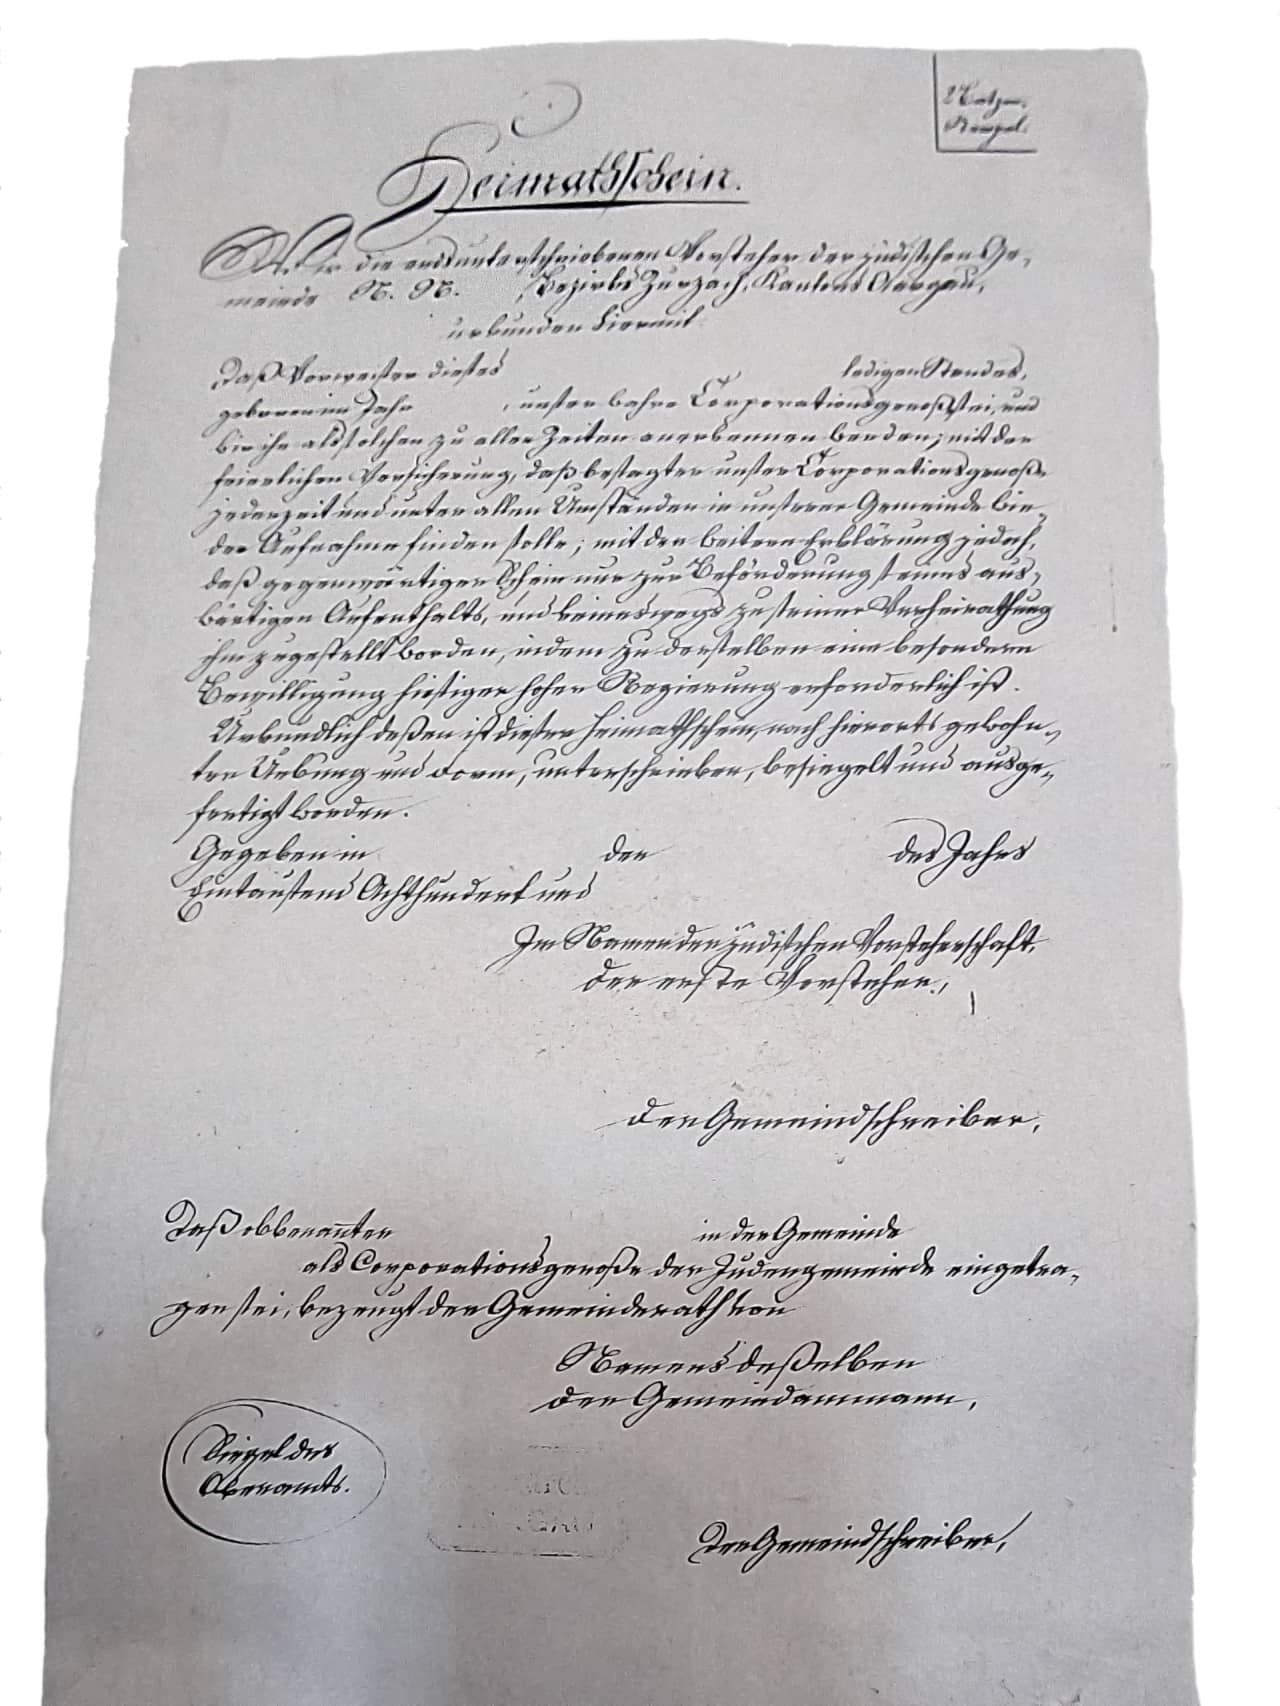 2 Batzen
Stempel.
Heimathschein.
Wir die endsunterschriebenen Vorsteher der jüdischen Ge-
meinde N. N. , Bezirks Zurzach, Kantons Aargau,
urkunden hiermit:
Daß Vorweiser dieses ledigen Standes,
geboren im Jahr , unser wahre Corporationsgenoß sei, und
wir ihn als solchen zu allen Zeiten anerkennen werden; mit der
feierlichen Versicherung, daß besagter unser Corporationsgenoße
jederzeit und unter allen Umständen in unserer Gemeinde wie-
der Aufnahme finden solle; mit der weitern Erklärung jedoch,
daß gegenwärtiger Schein nur zur Beförderung seines aus-
wärtigen Aufenthalts, und keineswegs zu seiner Verheirathung
ihm zugestellt worden, indem zu derselben eine besondere
Bewilligung hiesiger hoher Regierung erforderlich ist.
Urkundlich deßen ist dieser Heimathschein, nach hierorts gewohn-
ter Uebung und Form, unterschrieben, besiegelt und ausge-
fertigt worden.
Gegeben in den des Jahrs
Eintausend Achthundert und
Im Namen der jüdischen Vorsteherschaft,
der erste Vorsteher,
der Gemeindschreiber,
Daß obbenannter in der Gemeinde
als Corporationsgenoße der Judengemeinde eingetra-
gen sei, bezeugt der Gemeinderath von
Namens deßelben
der Gemeindammann,
Siegel des
Oberamts.
Der Gemeindschreiber,